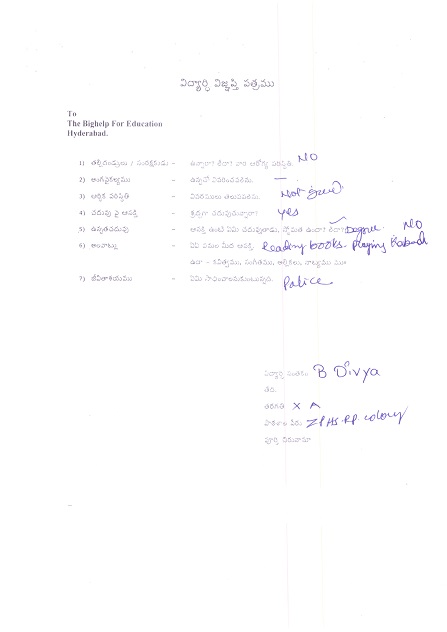 విద్యార్థి విజ్ఞప్తి పత్రము
To
The Bighelp For Education
Hyderabad.
1) తల్లిదండ్రులు / సంరక్షకుడు - ఉన్నారా? లేదా? వారి ఆరోగ్య పరిస్థితి. NO
2) అంగవైకల్యము - ఉన్నచో వివరించవలెను. —
3) ఆర్థిక పరిస్థితి - వివరములు తెలుపవలెను. Not good
4) చదువు పై ఆసక్తి - శ్రద్ధగా చదువుచున్నారా? yes
5) ఉన్నతచదువు - ఆసక్తి ఉంటే ఏమి చదువుతారు, స్తోమత ఉందా? లేదా? Degree NO
6) అలవాట్లు - ఏఏ పనుల మీద ఆసక్తి. Reading books. Playing Kabadi
ఉదా - కవిత్వము, సంగీతము, ఆటలు, నాట్యము
7) జీవితాశయము - ఏమి సాధించాలనుకుంటున్నది. Police
విద్యార్థి సంతకం B Divya
తేది.
తరగతి X A
పాఠశాల పేరు ZPHS RP colony
పూర్తి చిరునామా